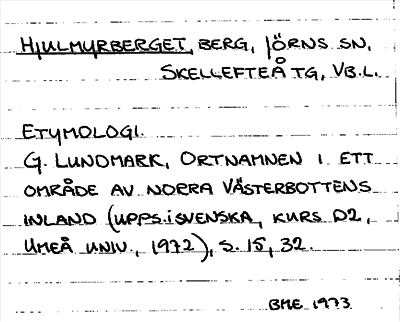 HJULMYRBERGET, BERG, JÖRNS SN,
SKELLEFTEÅ TG, VB.L.
ETYMOLOGI.
G. LUNDMARK, ORTNAMNEN I ETT
OMRÅDE AV NORRA VÄSTERBOTTENS
INLAND (UPPS. I SVENSKA, KURS D2,
UMEÅ UNIV., 1972), S. 15, 32.
BME 1973